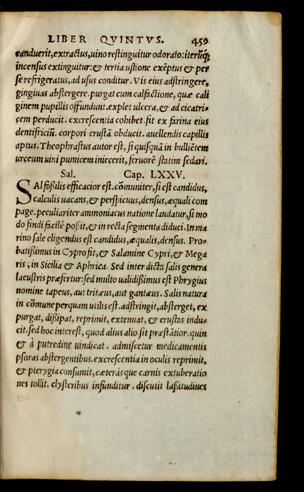 LIBER QVINTVS. 459
canduerit, extractus, uino restinguitur odorato: iterũq́;
incensus extinguitur: & tertia ustione exẽptus & per
se refrigeratus, ad usus conditur. Vis eius adstringere,
gingiuas abstergere. purgat cum calfactione, quæ cali
ginem pupillis offundunt. explet ulcera, & ad cicatri=
cem perducit. excrescentia cohibet. fit ex farina eius
dentifriciũ. corpori crustã obducit. auellendis capillis
aptus. Theophrastus autor est, si quisquã in bulliẽtem
urceum uini pumicem iniecerit, feruorẽ statim sedari.
Sal. Cap. LXXV.
SAl foßilis efficacior est. cõmuniter, si est candidus,
calculis uacans, & perspicuus, densus, æquali com
page. peculiariter ammoniacus natione laudatur, si mo
do findi facilè poßit, & in recta segmenta diduci. In ma
rino sale eligendus est candidus, æqualis, densus. Pro=
batißimus in Cypro fit, & Salamine Cypri, & Mega
ris, in Sicilia & Aphrica. Sed inter dicta salis genera
lacustris præfertur: sed multo ualidißimus est Phrygius
nomine tapeus, aut tritæus, aut gantæus. Salis natura
in cõmune perquam utilis est. adstringit, absterget, ex
purgat, dißipat, reprimit, extenuat, & crustas indu=
cit. sed hoc interest, quod alius alio sit præstãtior. quin
& à putredine uindicat. admiscetur medicamentis
psoras abstergentibus. excrescentia in oculis reprimit,
& pterygia consumit, cæterásque carnis extuberatio
nes tollit. clysteribus infunditur. discutit laßitudines